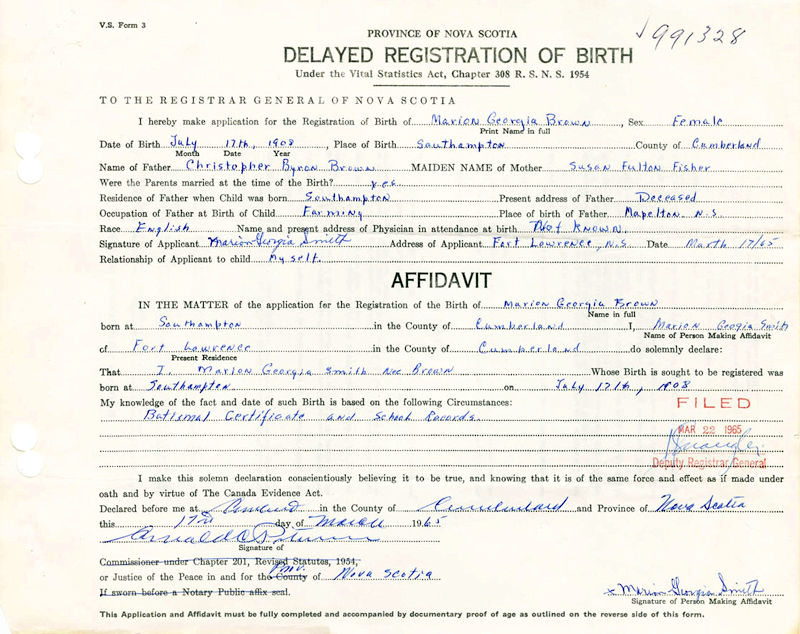 V.S. Form 3
PROVINCE OF NOVA SCOTIA
√991328
DELAYED REGISTRATION OF BIRTH
Under the Vital Statistics Act, Chapter 308 R. S. N. S. 1954
TO THE REGISTRAR GENERAL OF NOVA SCOTIA
I hereby make application for the Registration of Birth of Marion Georgia Brown, Sex Female
Print Name in full
Date of Birth July 17th, 1908, Place of Birth Southampton County of Cumberland
Month Date Year
Name of Father Christopher Byron Brown MAIDEN NAME of Mother Susan Fulton Fisher
Were the Parents married at the time of the Birth? yes
Residence of Father when Child was born Southampton Present address of Father Deceased
Occupation of Father at Birth of Child Farming Place of birth of Father Mapelton. N.S
Race English Name and present address of Physician in attendance at birth Not Known.
Signature of Applicant Marion Georgia Smith Address of Applicant Fort Lowrence, N.S Date Marth 17/65
Relationship of Applicant to child My self.
AFFIDAVIT
IN THE MATTER of the application for the Registration of the Birth of Marion Georgia Brown
Name in full
born at Southampton in the County of Cumberland I, Marion Geogia Smith
Name of Person Making Affidavit
of Fort Lowrence in the County of Cumberland do solemnly declare:
Present Residence
That I. Marion Georgia Smith nee Brown Whose Birth is sought to be registered was
born at Southampton on July 17th, 1908
My knowledge of the fact and date of such Birth is based on the following Circumstances:
Batismal Certificate and School Records.
FILED
MAR 22 1965
Deputy Registrar General
I make this solemn declaration conscientiously believing it to be true, and knowing that it is of the same force and effect as if made under
oath and by virtue of The Canada Evidence Act.
Declared before me at Amherst in the County of Cumberland and Province of Nova Scotia
this 17th day of March 1965
Signature of
Commissioner under Chapter 201, Revised Statutes, 1954,
or Justice of the Peace in and for the Prov. County of Nova Scotia
If sworn before a Notary Public affix seal.
x Marion Georgia Smith
Signature of Person Making Affidavit
This Application and Affidavit must be fully completed and accompanied by documentary proof of age as outlined on the reverse side of this form.